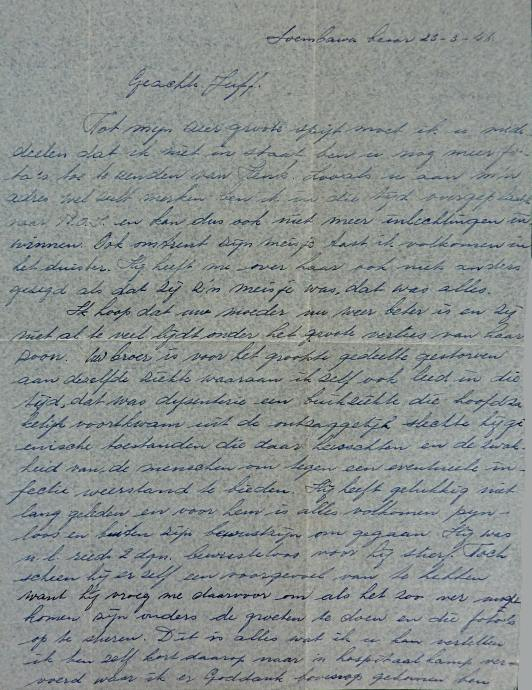 Soembawa besar 23-3-46.
Geachte Juff.
Tot mijn zeer groote spijt moet ik u mede
deelen dat ik niet in staat ben u nog meer fo-
to's toe te zenden van Henk. Zooals u aan mijn
adres wel zult merken ben ik in die tijd overgeplaatst
naar en kan dus ook niet meer inlechtingen in
winnen. Ook omtrent zijn meisje tast ik volkomen in
het duister. Hij heeft me over haar ook niets anders
gezegd als dat zij z'n meisje was, dat was alles.
Ik hoop dat uw moeder nu weer beter is en zij
niet al te veel lijdt onder het groote verlies van haar
zoon. Uw broer is voor het grootste gedeelte gestorven
aan dezelfde ziekte waaraan ik zelf ook leed in die
tijd, dat was dysenterie een buikziekte die hoofdza
kelijk voorkwam uit de ontzaggelijk slechte hygi
enische toestanden die daar heerschten en de zwak-
heid van de menschen om tegen een eventueele in-
fectie weerstand te bieden. Hij heeft gelukkig niet
lang geleden en voor hem is alles volkomen pijn-
loos en buiten zijn bewustzijn om gegaan. Hij was
n.l. reeds 2 dgn. bewusteloos voor hij stierf. Toch
scheen hij er zelf een voorgevoel van te hebben
want hij vroeg me daarvoor om als het zoo ver mocht
komen zijn ouders de groeten te doen en die foto's
op te sturen. Dit is alles wat ik u kan vertellen
ik ben zelf kort daarop naar 'n hospitaal kamp ver-
voerd waar ik er Goddank bovenop gekomen ben